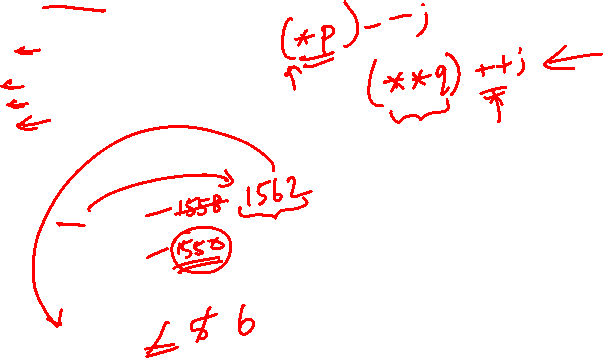 (*p)--;
(**q)++;
1558 1562
1558
6